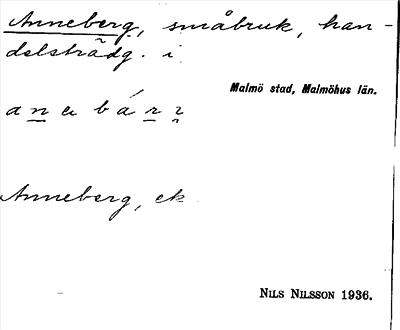 Anneberg, småbruk, han-
delsträdg. i
Malmö stad, Malmöhus län.
Anneberg, ek
NILS NILSSON 1936.